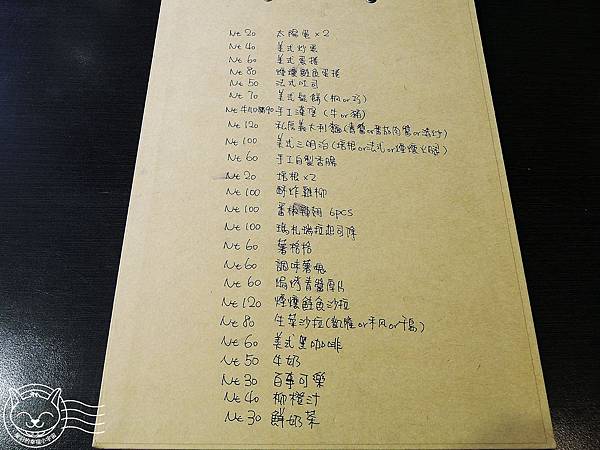 Nt 20 太陽蛋 x 2
Nt 40 美式炒蛋
Nt 60 美式蛋捲
Nt 80 煙燻鮭魚蛋捲
Nt 50 法式吐司
Nt 70 美式鬆餅(楓or巧)
手工漢堡(牛or豬)
Nt 120 私房義大利麵(青醬or蕃茄肉醬or清炒)
Nt 100 美式三明治(培根or法扎or煙燻火腿)
Nt 60 手工自製香腸
Nt 20 培根 x 2
Nt 100 酥炸雞柳
Nt 100 香椒雞翅 6pcs
Nt 100 瑪札瑞拉起司條
Nt 60 薯格格
Nt 60 調味薯塊
Nt 60 焗烤青醬厚片
Nt 120 煙燻鮭魚沙拉
Nt 80 生菜沙拉(凱薩or千島)
Nt 60 美式黑咖啡
Nt 50 牛奶
Nt 30 百事可樂
Nt 40 柳橙汁
Nt 30 鮮奶茶